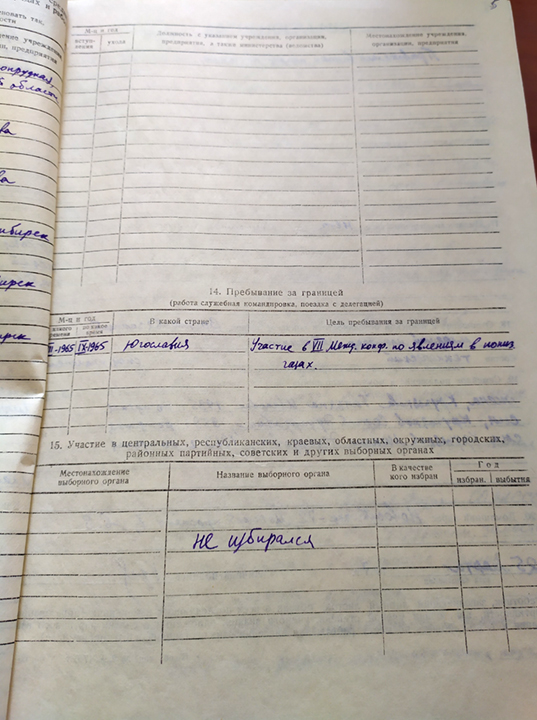 5
М-ц и год
Должность с указанием учреждения, организации,
предприятия, а также министерства (ведомства)
Местонахождение учреждения,
организации, предприятия
вступ-
ления
ухода
14. Пребывание за границей
(работа служебная командировка, поездка с делегацией)
М-ц и год
В какой стране
Цель пребывания за границей
по какое
время
-1965 IX-1965 Югославия Участие в VII Межд. конф. по явлениям в иониз
газах.
15. Участие в центральных, республиканских, краевых, областных, окружных, городских,
районных партийных, советских и других выборных органах
Местонахождение
выборного органа
Название выборного органа
В качестве
кого избран
Год
избран.
выбытия
не избирался